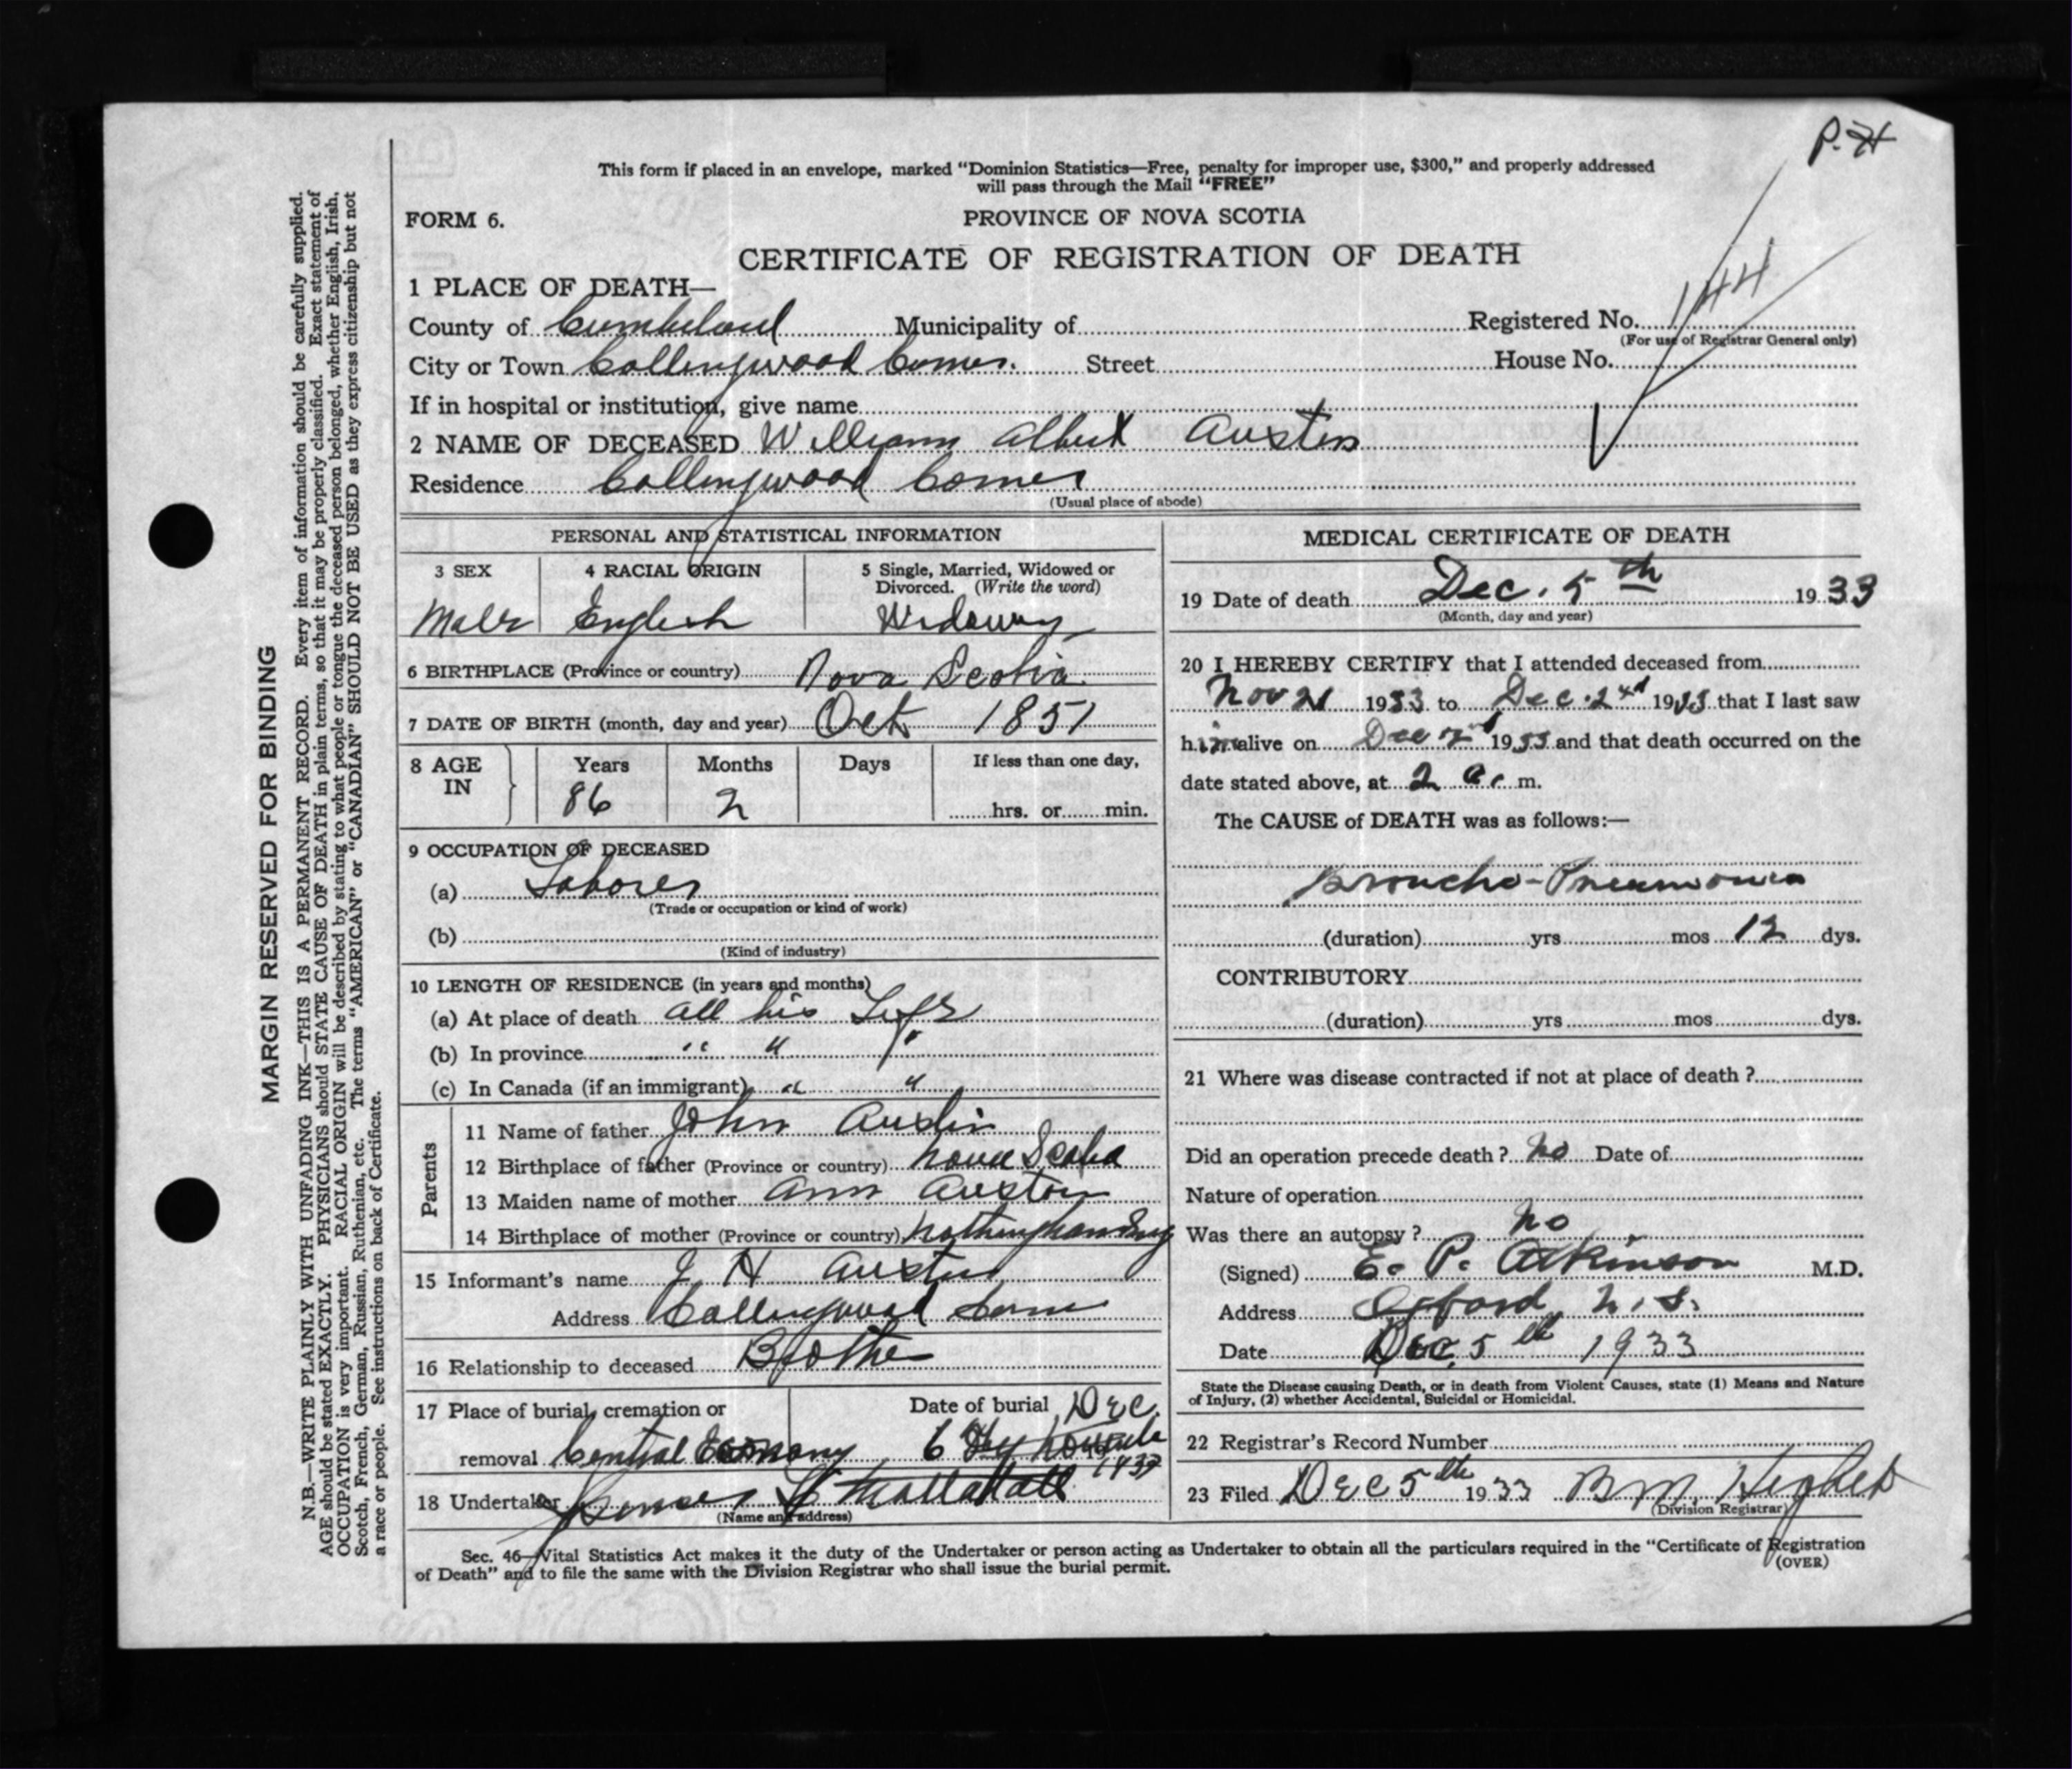 P.H
This form if placed in an envelope, marked "Dominion Statistics—Free, penalty for improper use, $300," and properly addressed
will pass through the Mail "FREE"
FORM 6.
PROVINCE OF NOVA SCOTIA
CERTIFICATE OF REGISTRATION OF DEATH
1 PLACE OF DEATH—
County of Cumberland Municipality of Registered No. 144
(For use of Registrar General only)
City or Town Collingwood Corner. Street House No.
If in hospital or institution, give name
2 NAME OF DECEASED William Albert Austin
Residence Collingwood Corner
(Usual place of abode)
PERSONAL AND STATISTICAL INFORMATION
3 SEX 4 RACIAL ORIGIN 5 Single, Married, Widowed or
Divorced. (Write the word)
Male English
6 BIRTHPLACE (Province or country) Nova Scotia
7 DATE OF BIRTH (month, day and year) Oct 1851
8 AGE IN Years Months Days If less than one day,
86 2 hrs. or min.
9 OCCUPATION OF DECEASED
(a) Laborer
(Trade or occupation or kind of work)
(b)
(Kind of industry)
10 LENGTH OF RESIDENCE (in years and months)
(a) At place of death all his Life
(b) In province " " "
(c) In Canada (if an immigrant) " "
Parents
11 Name of father John Austin
12 Birthplace of father (Province or country) Nova Scotia
13 Maiden name of mother Ann Auston
14 Birthplace of mother (Province or country) Nottingham Eng
15 Informant's name J H Austin
Address Collingwood Corner
16 Relationship to deceased Brother
17 Place of burial, cremation or Date of burial Dec.
removal Central Economy 6 1933
18 Undertaker
(Name and address)
MEDICAL CERTIFICATE OF DEATH
19 Date of death Dec. 5th 1933
(Month, day and year)
20 I HEREBY CERTIFY that I attended deceased from
Nov 21 1933 to Dec. 2nd 1933 that I last saw
him alive on Dec 2nd 1933 and that death occurred on the
date stated above, at 2 a.m.
The CAUSE of DEATH was as follows:—
Broncho-Pneumonia
(duration) yrs mos 12 dys.
CONTRIBUTORY
(duration) yrs mos dys.
21 Where was disease contracted if not at place of death ?
Did an operation precede death ? No Date of
Nature of operation
Was there an autopsy ? No
(Signed) E. P. Atkinson M.D.
Address Oxford, N.S.
Date Dec. 5th 1933
State the Disease causing Death, or in death from Violent Causes, state (1) Means and Nature
of Injury, (2) whether Accidental, Suicidal or Homicidal.
22 Registrar's Record Number
23 Filed Dec 5th 1933 B M
(Division Registrar)
Sec. 46—Vital Statistics Act makes it the duty of the Undertaker or person acting as Undertaker to obtain all the particulars required in the "Certificate of Registration
of Death" and to file the same with the Division Registrar who shall issue the burial permit.
(OVER)
MARGIN RESERVED FOR BINDING
N.B.—WRITE PLAINLY WITH UNFADING INK—THIS IS A PERMANENT RECORD. Every item of information should be carefully supplied.
AGE should be stated EXACTLY. PHYSICIANS should STATE CAUSE OF DEATH in plain terms, so that it may be properly classified. Exact statement of
OCCUPATION is very important. RACIAL ORIGIN will be described by stating to what people or tongue the deceased person belonged, whether English, Irish,
Scotch, French, German, Russian, Ruthenian, etc. The terms "AMERICAN" or "CANADIAN" SHOULD NOT BE USED as they express citizenship but not
a race or people. See instructions on back of Certificate.